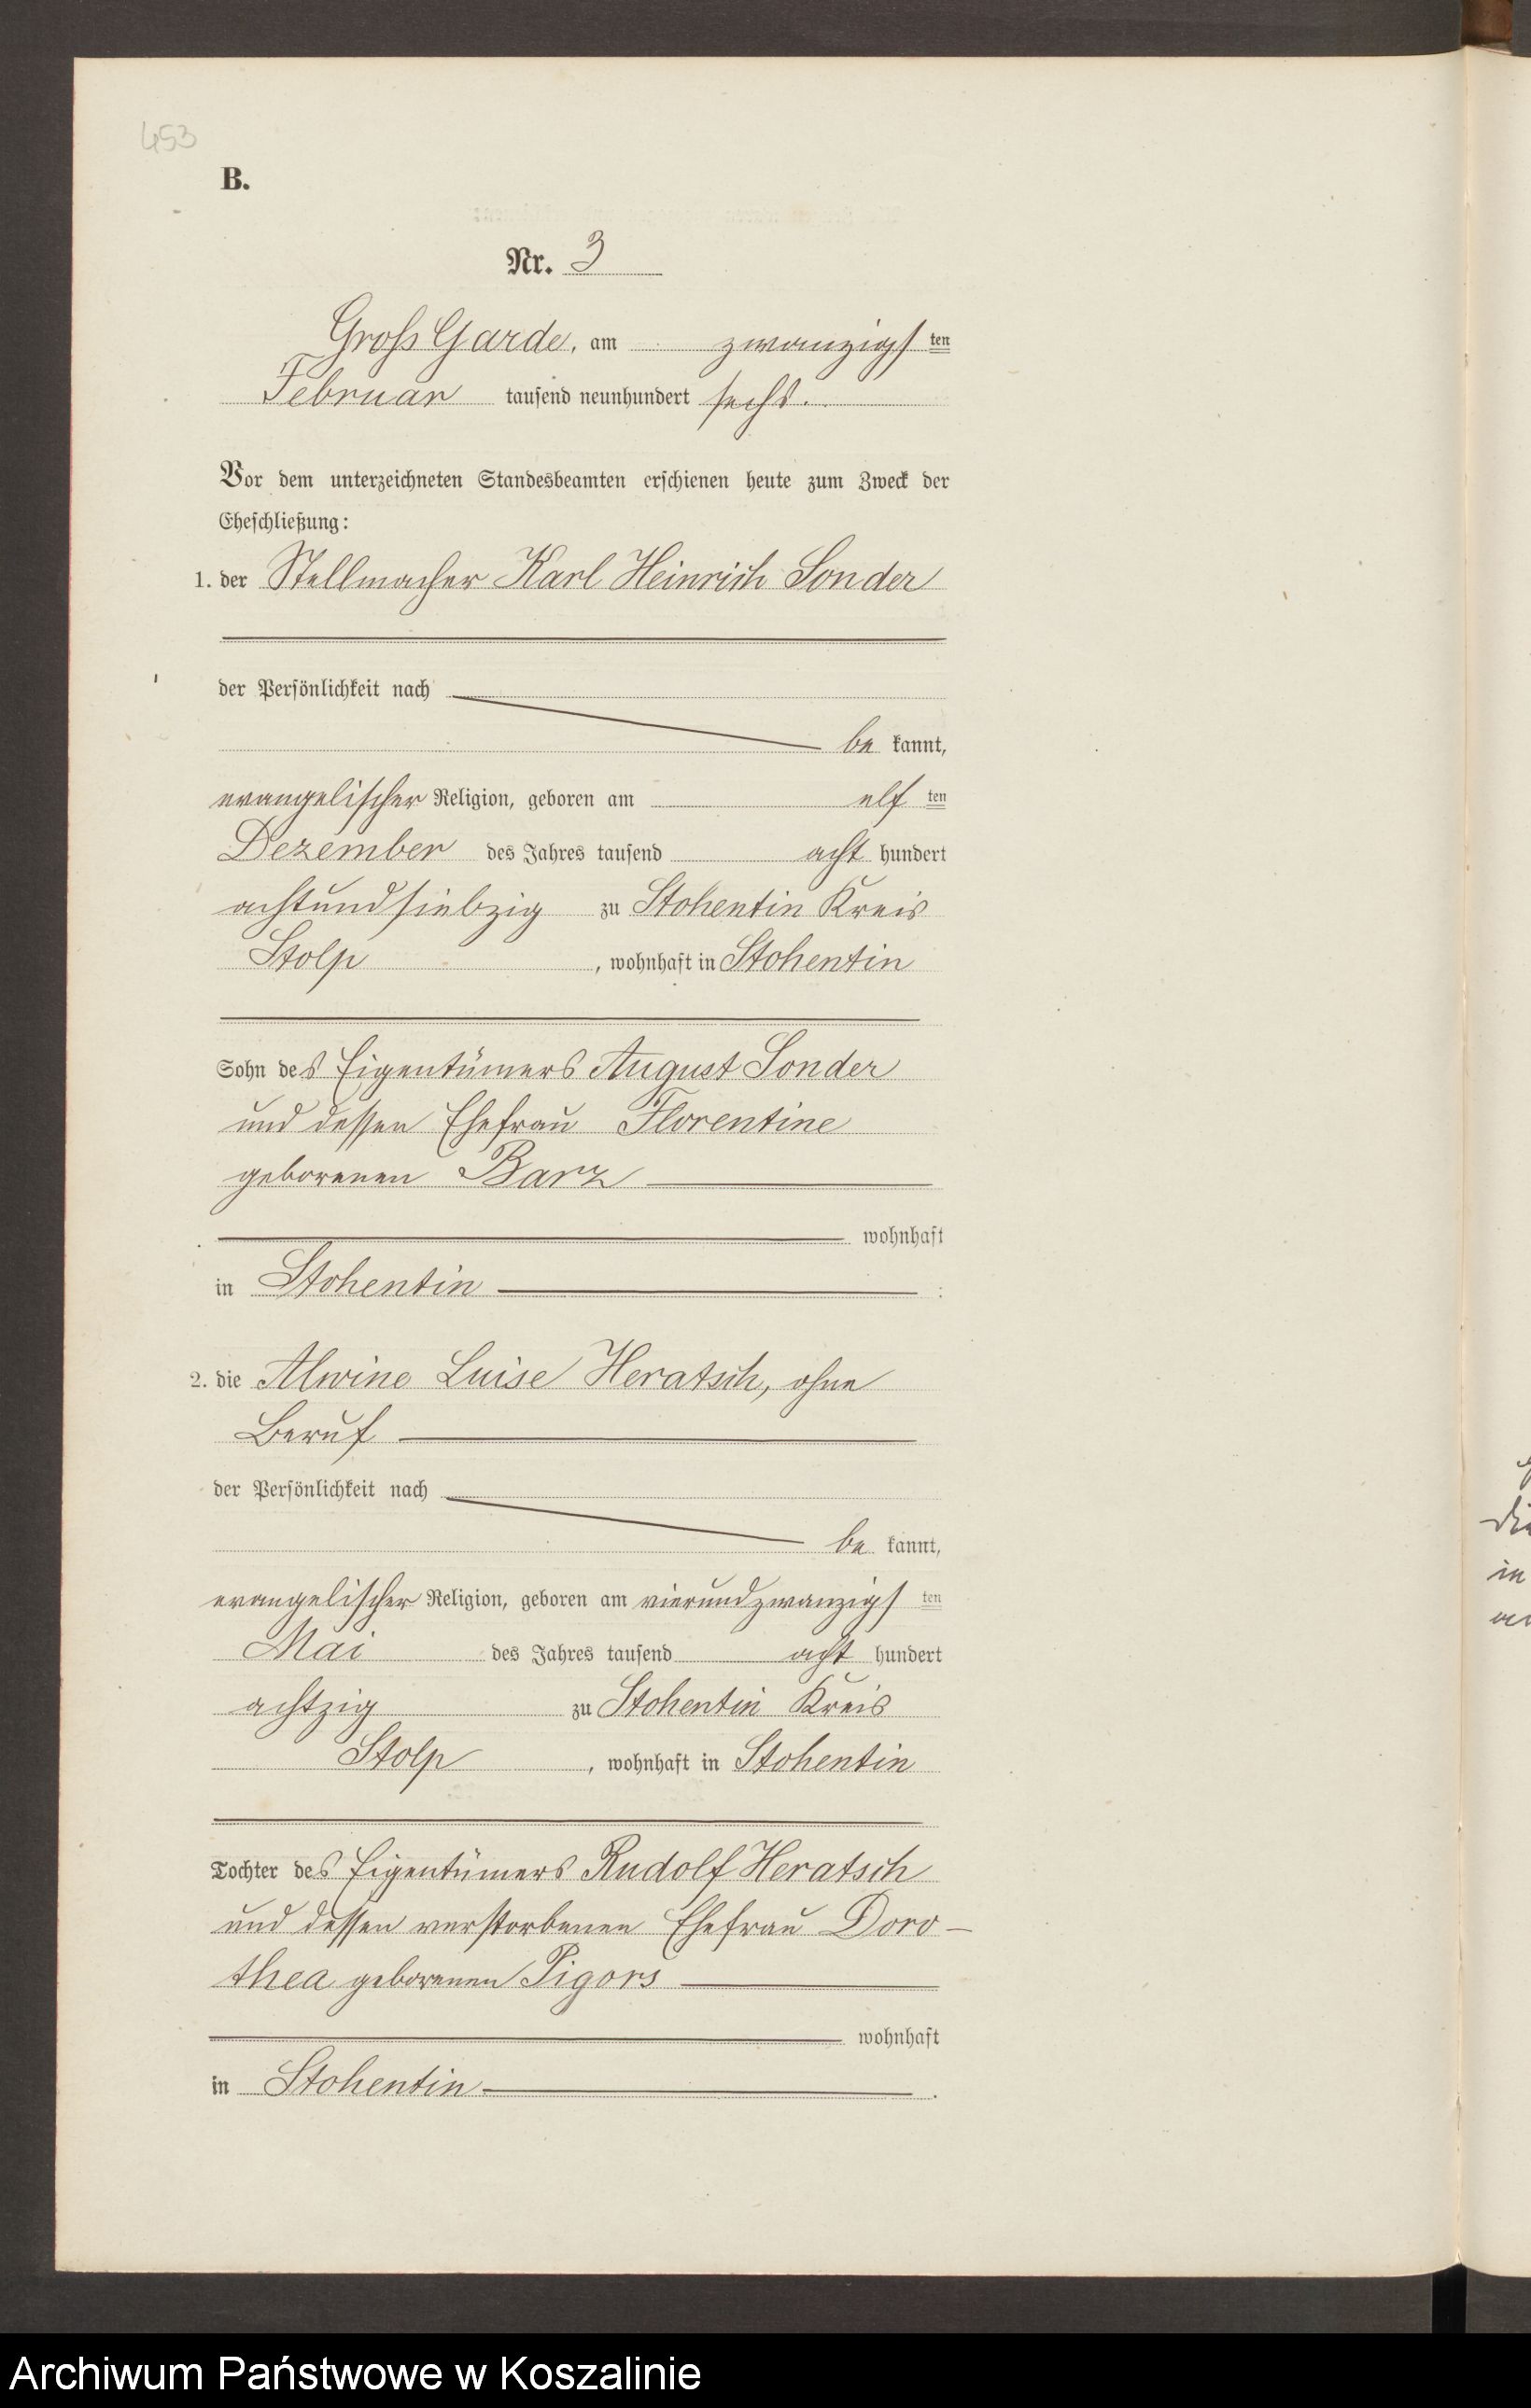 453
B.
Nr. 3
Groß Garde, am zwanzigsten
Februar tausend neunhundert sechs.
Vor dem unterzeichneten Standesbeamten erschienen heute zum Zweck der
Eheschließung:
1. der Stellmacher Karl Heinrich Sonder
der Persönlichkeit nach
be kannt,
evangelischer Religion, geboren am elf ten
Dezember des Jahres tausend acht hundert
achtundsiebzig zu Stohentin Kreis
Stolp, wohnhaft in Stohentin
Sohn des Eigentümers August Sonder
und dessen Ehefrau Florentine
geborenen Barz
wohnhaft
in Stohentin :
2. die Alwine Luise Heratsch, ohne
Beruf
der Persönlichkeit nach
be kannt,
evangelischer Religion, geboren am vierundzwanzigsten
Mai des Jahres tausend acht hundert
achtzig zu Stohentin Kreis
Stolp, wohnhaft in Stohentin
Tochter des Eigentümers Rudolf Heratsch
und dessen verstorbenen Ehefrau Doro-
thea geborenen Pigors
wohnhaft
in Stohentin.
die
in
Archiwum Państwowe w Koszalinie